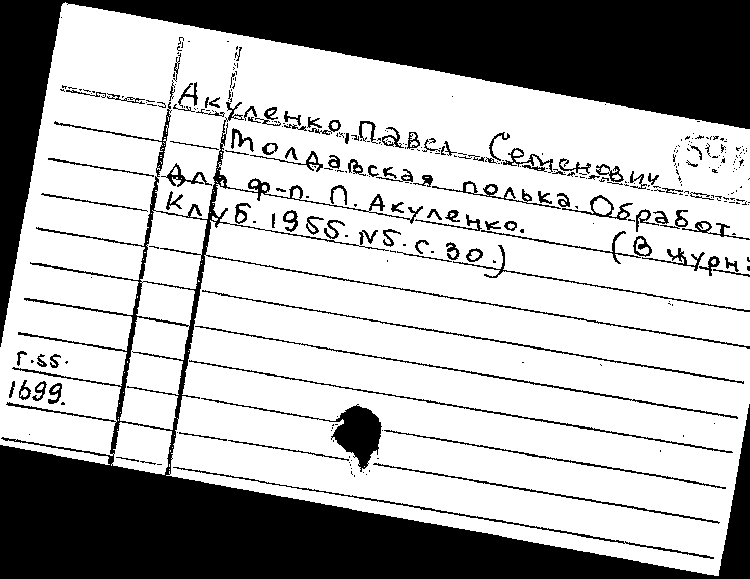 Акуленко, Павел Семенович
Молдавская полька. Обработ.
для ф-п. П. Акуленко. (В журн:
Клуб. 1955. N5. с. 30.)
г.55.
1699.